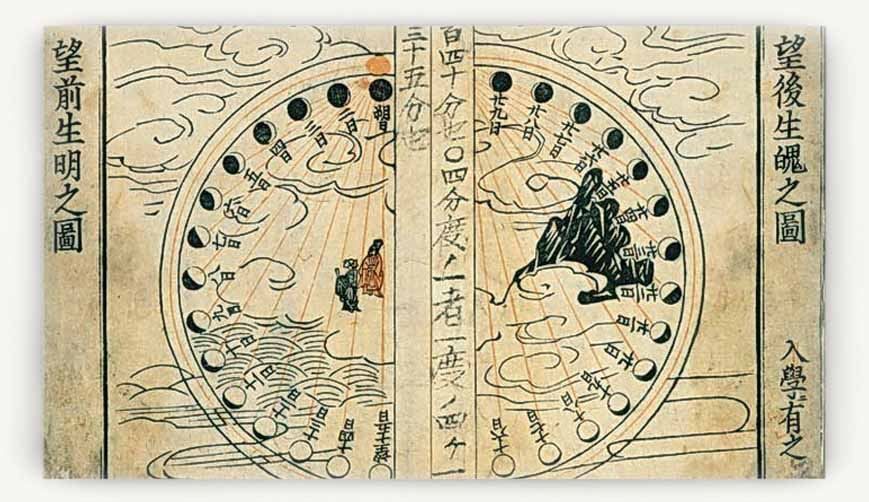 望後生魄之圖
入學ニ有之
廿九日
廿八日
廿七日
廿六日
廿五日
廿四日
廿三日
廿二日
廿一日
廿日
十九日
十八日
十七日
十六日
百四十分也〇四分度ノ一者一度ノ四ケ一
三十五分也
朔日
二日
三日
四日
五日
六日
七日
八日
九日
十日
十一日
十二日
十三日
十四日
望十五日
望前生明之圖